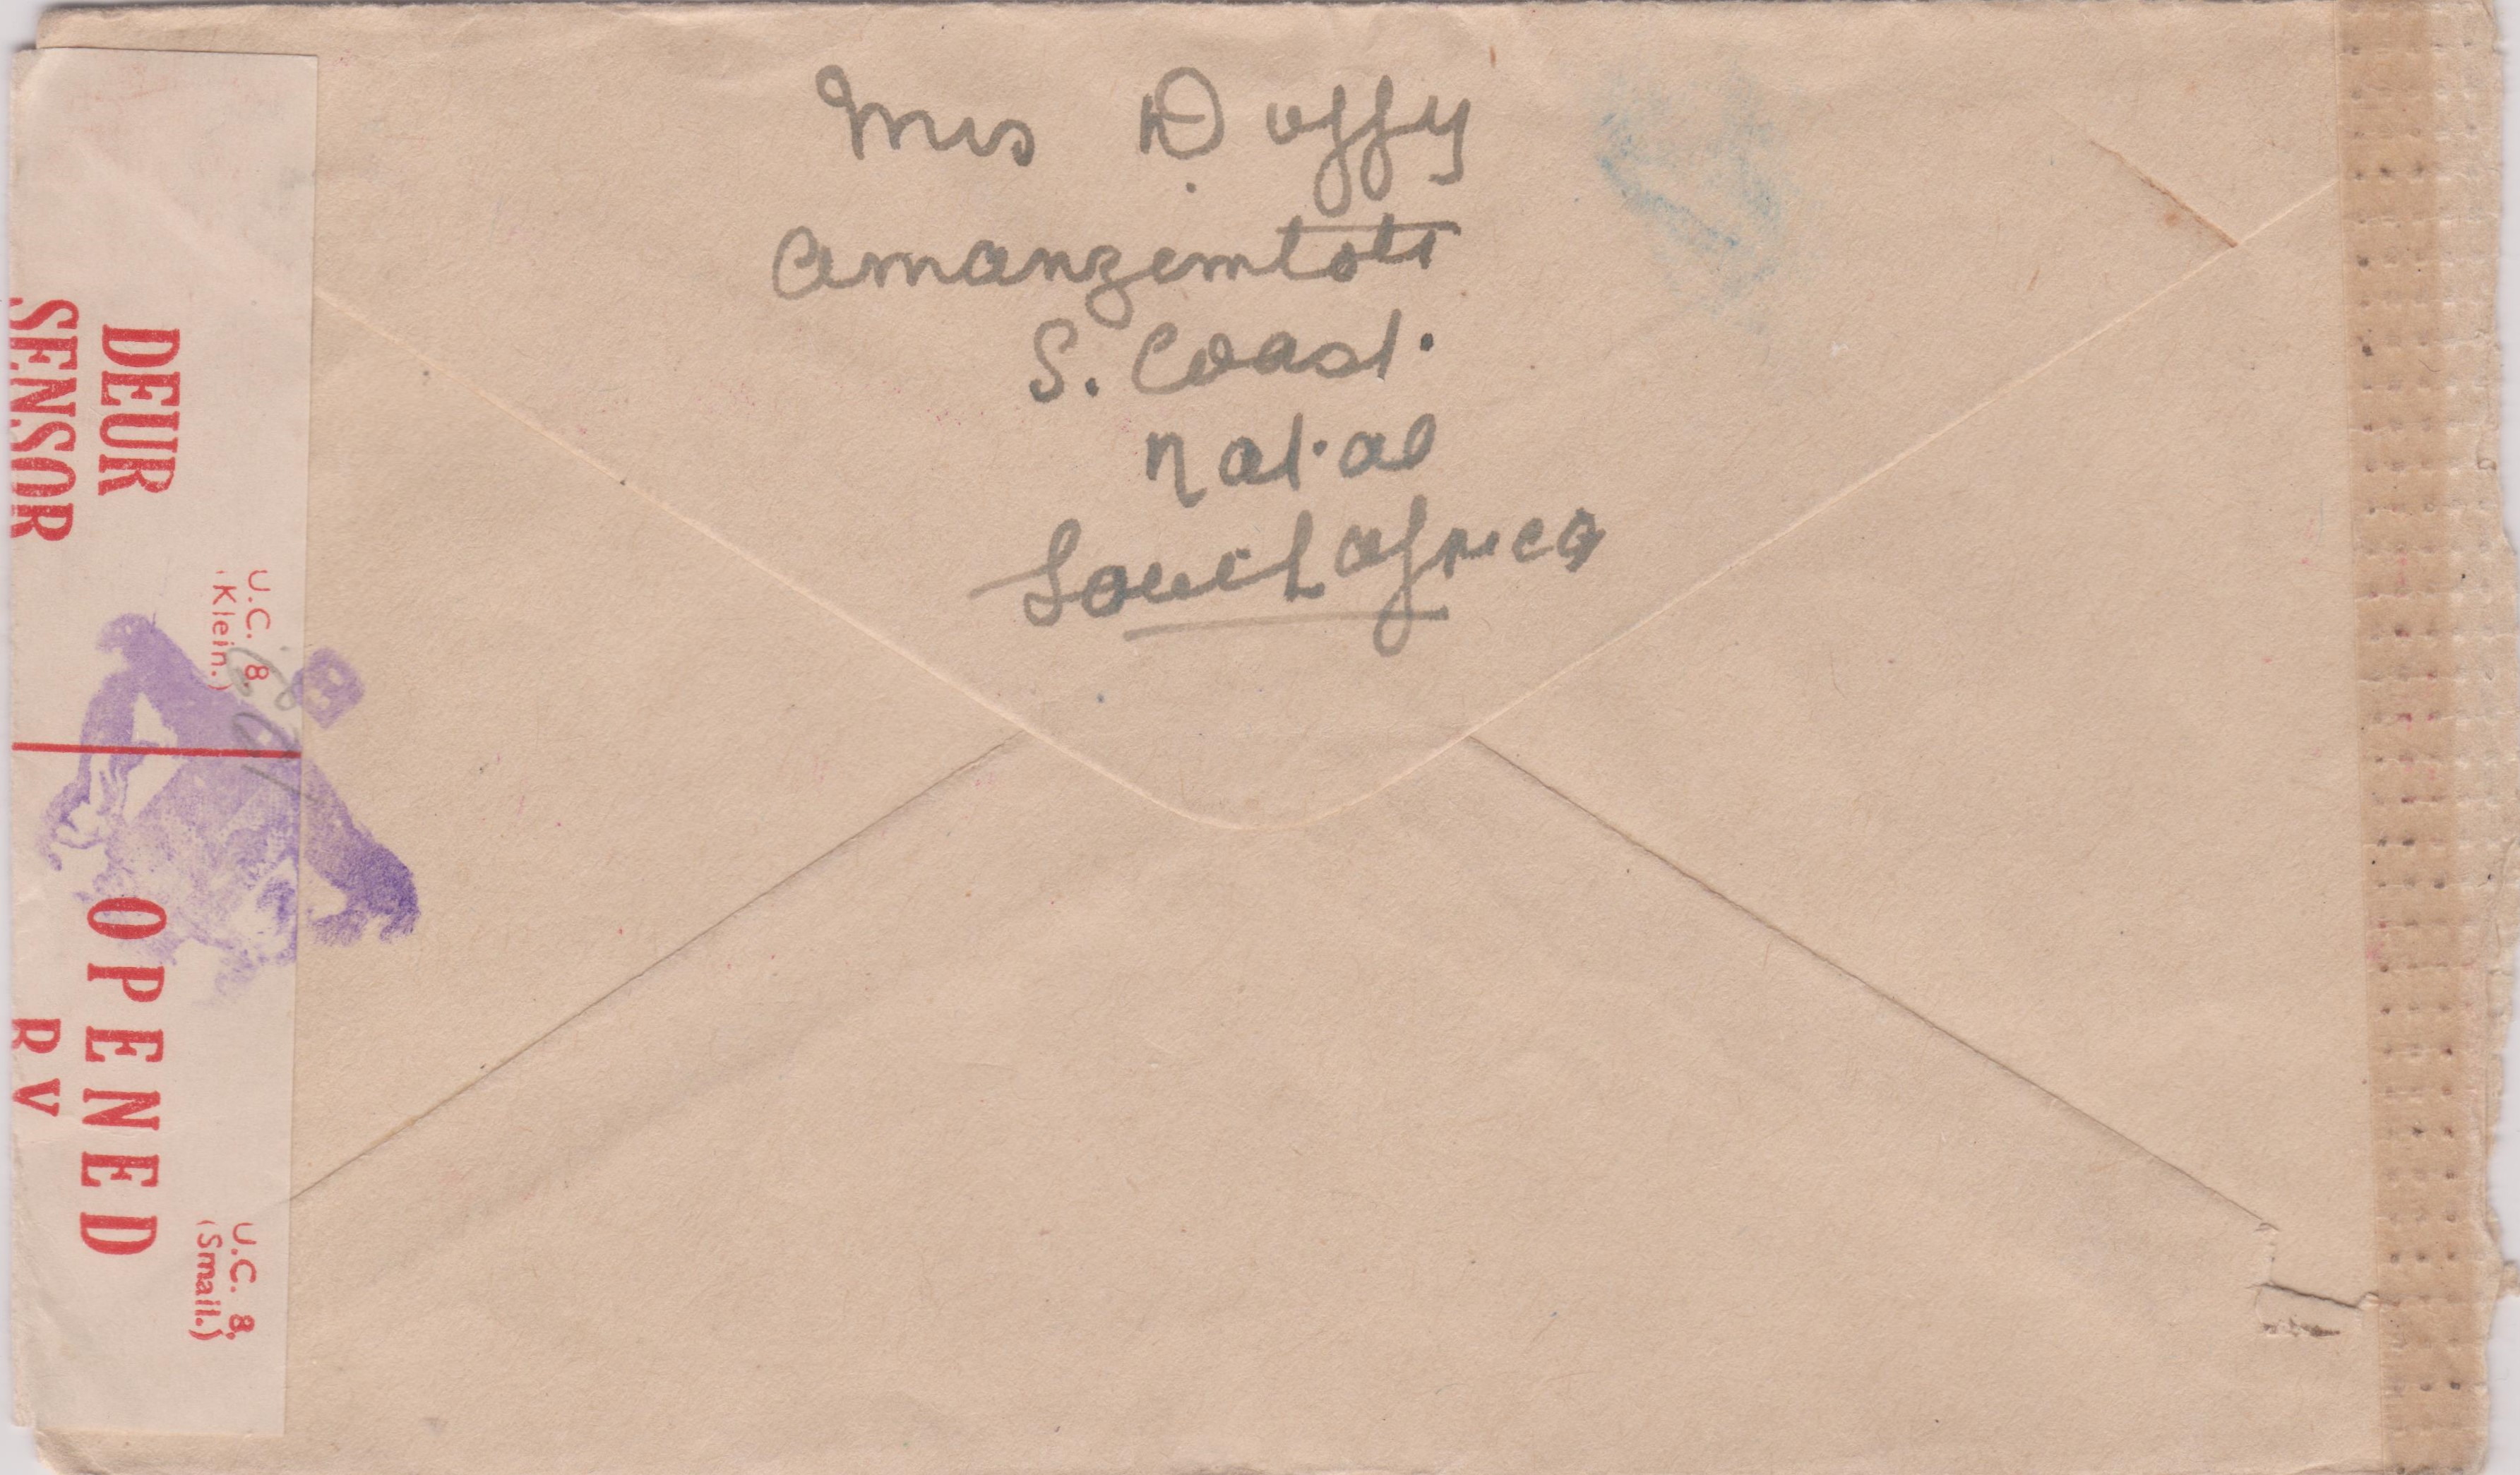 Mrs Duffy
Amanzemtoti
S. Coast.
Natal
South Africa
DEUR
SENSOR
U.C. 8.
(Klein.)
OPENED
BY
U.C. 8.
(Small.)